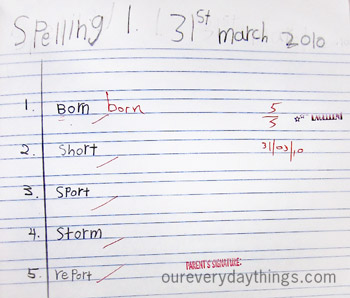 Spelling 1. 31st march 2010
1. Born born 5/5 EXCELLENT
2. Short 31/03/10
3. Sport
4. Storm
5. report PARENT'S SIGNATURE:
oureverydaythings.com